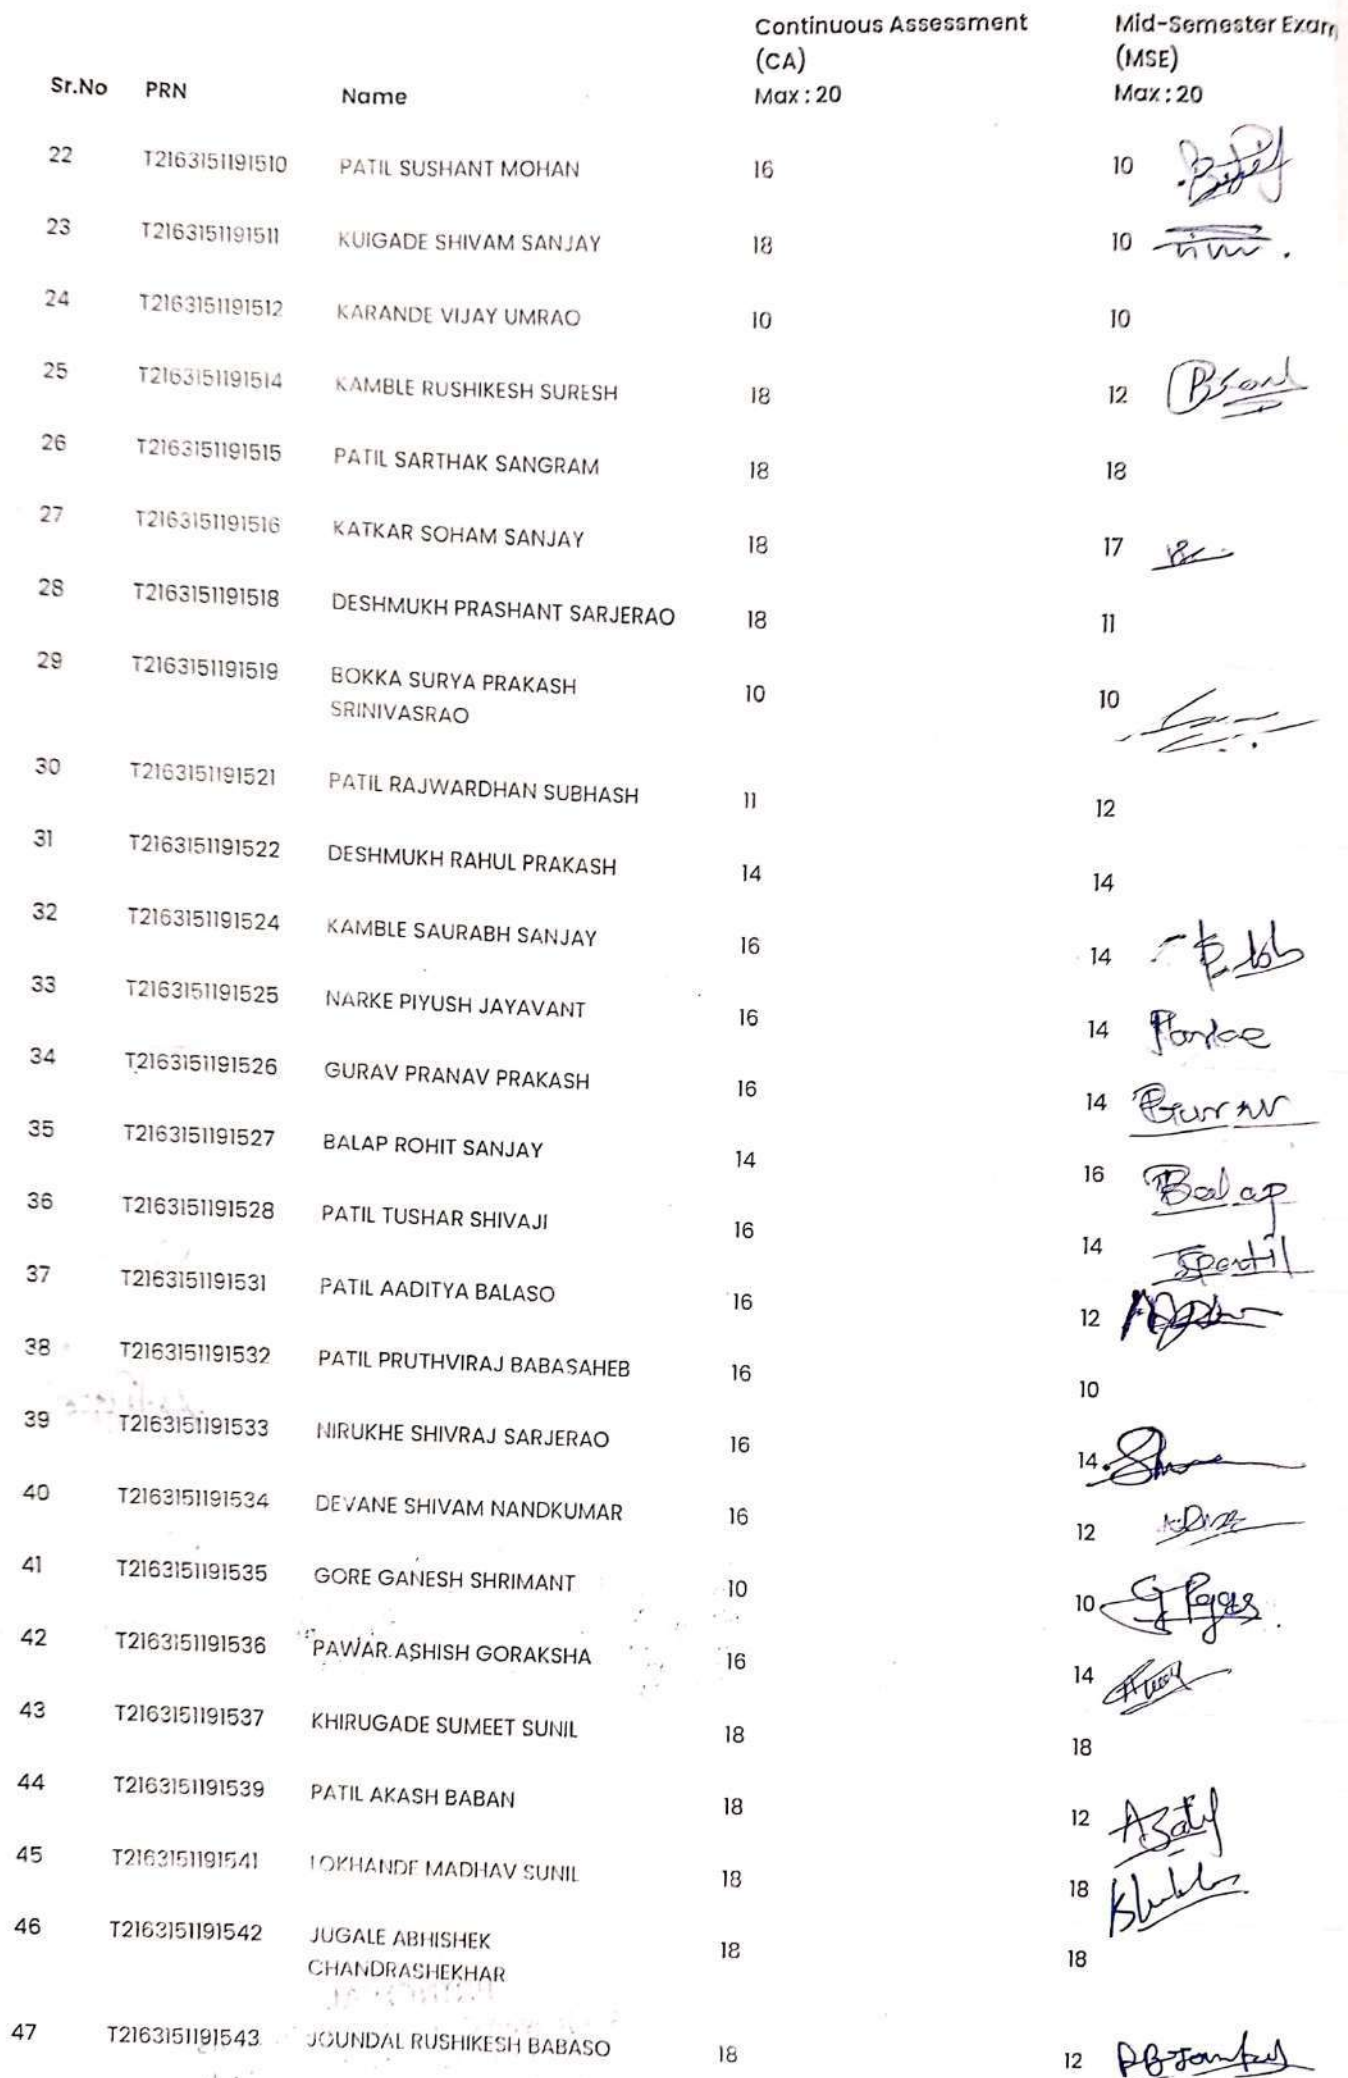 Sr.No PRN Name Continuous Assessment (CA) Max : 20 Mid-Semester Exam (MSE) Max : 20
22 T2163151191510 PATIL SUSHANT MOHAN 16 10
23 T2163151191511 KUIGADE SHIVAM SANJAY 18 10
24 T2163151191512 KARANDE VIJAY UMRAO 10 10
25 T2163151191514 KAMBLE RUSHIKESH SURESH 18 12
26 T2163151191515 PATIL SARTHAK SANGRAM 18 18
27 T2163151191516 KATKAR SOHAM SANJAY 18 17
28 T2163151191518 DESHMUKH PRASHANT SARJERAO 18 11
29 T2163151191519 BOKKA SURYA PRAKASH 10 10
SRINIVASRAO
30 T2163151191521 PATIL RAJWARDHAN SUBHASH 11 12
31 T2163151191522 DESHMUKH RAHUL PRAKASH 14 14
32 T2163151191524 KAMBLE SAURABH SANJAY 16 14
33 T2163151191525 NARKE PIYUSH JAYAVANT 16 14
34 T2163151191526 GURAV PRANAV PRAKASH 16 14
35 T2163151191527 BALAP ROHIT SANJAY 14 16 Balap
36 T2163151191528 PATIL TUSHAR SHIVAJI 16 14
37 T2163151191531 PATIL AADITYA BALASO 16 12
38 T2163151191532 PATIL PRUTHVIRAJ BABASAHEB 16 10
39 T2163151191533 NIRUKHE SHIVRAJ SARJERAO 16 14
40 T2163151191534 DEVANE SHIVAM NANDKUMAR 16 12
41 T2163151191535 GORE GANESH SHRIMANT 10 10
42 T2163151191536 PAWAR ASHISH GORAKSHA 16 14
43 T2163151191537 KHIRUGADE SUMEET SUNIL 18 18
44 T2163151191539 PATIL AKASH BABAN 18 12
45 T2163151191541 LOKHANDE MADHAV SUNIL 18 18
46 T2163151191542 JUGALE ABHISHEK 18 18
CHANDRASHEKHAR
47 T2163151191543 JOUNDAL RUSHIKESH BABASO 18 12